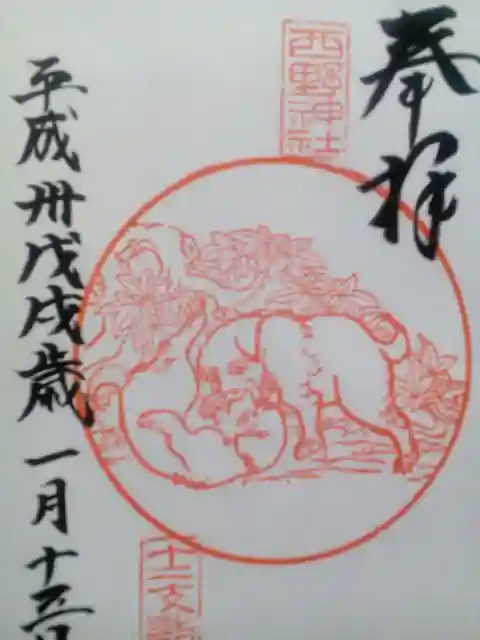 奉拝
西野神社
平成卅戊戌歳一月十三日
十二支